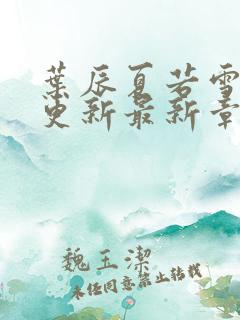 葉辰夏若雪
更新最新章
魏玉潔
未经同意禁止转载